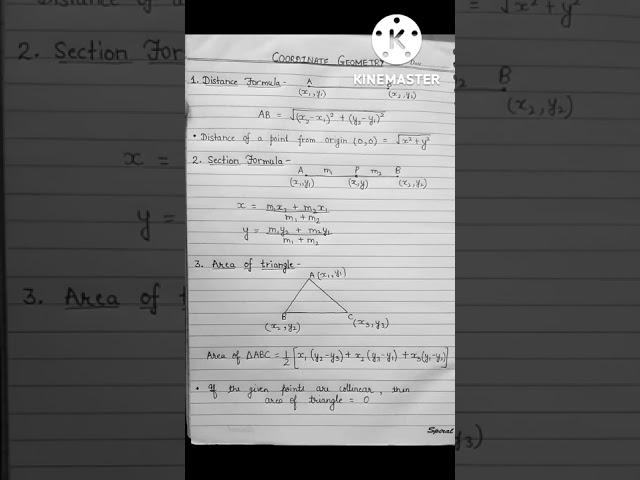 COORDINATE GEOMETRY
KINEMASTER
1. Distance Formula -
A
(x₁,y₁) (x₂,y₁)
AB = √(x₂-x₁)² + (y₂-y₁)²
• Distance of a point from origin (0,0) = √x²+y²
2. Section Formula -
A m₁ P m₂ B
(x₁,y₁) (x,y) (x₂,y₂)
x = m₁x₂ + m₂x₁ / m₁+m₂
y = m₁y₂ + m₂y₁ / m₁+m₂
3. Area of triangle -
A(x₁,y₁)
B C
(x₂,y₂) (x₃,y₃)
Area of ΔABC = 1/2 [x₁(y₂-y₃) + x₂(y₃-y₁) + x₃(y₁-y₂)]
• If the given points are collinear, then
area of triangle = 0
Spiral
2. Section Form
B
(x₂,y₂)
x =
y =
3. Area of t
√x²+y²
y₃)